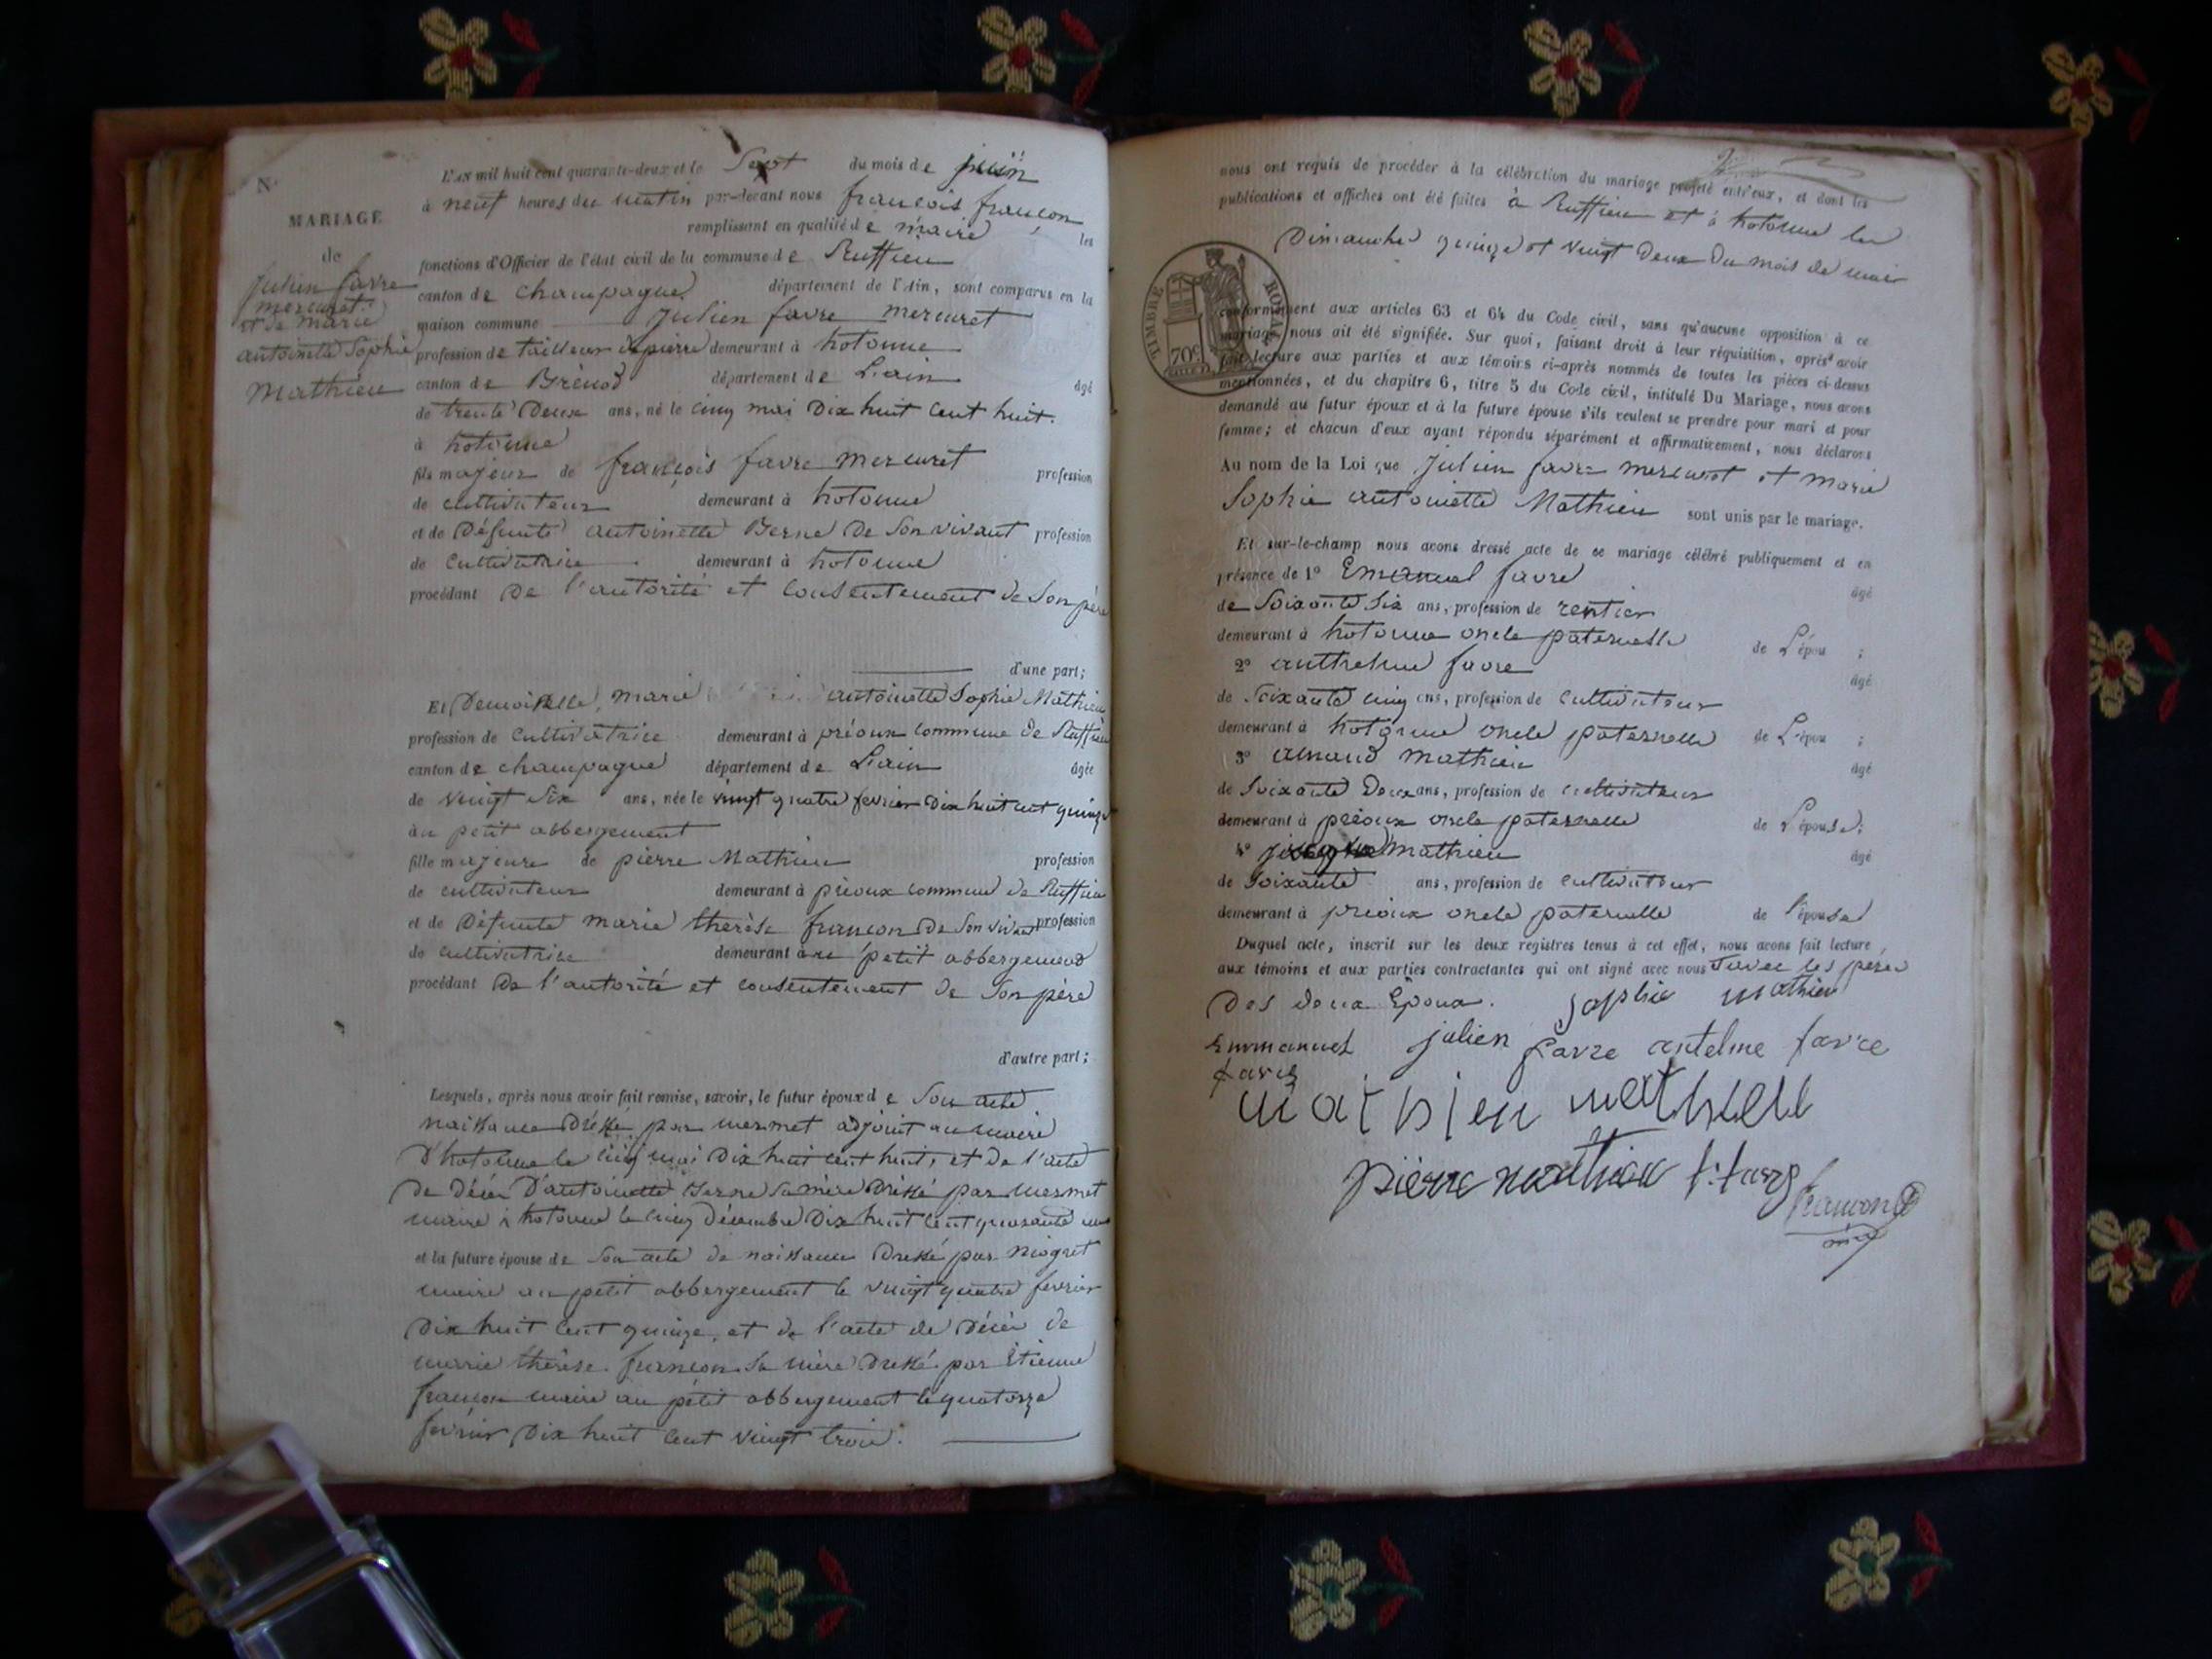 N.
MARIAGE
de
julien favre
mercuret
et de marie
antoinette Sophie
Mathieu
L'AN mil huit cent quarante-deux et le Sept du mois de juin
à neuf heures du matin par-devant nous françois françon
remplissant en qualité de maire les
fonctions d'Officier de l'état civil de la commune de Ruffieu
canton de champagne département de l'Ain, sont comparus en la
maison commune julien favre mercuret
profession de tailleur de pierre demeurant à hotonne
canton de Brénod département de L'ain âgé
de trente Deux ans, né le cinq mai Dix huit cent huit.
à hotonne
fils majeur de françois favre mercuret profession
de cultivateur demeurant à hotonne
et de Défunte antoinette Berne De Son vivant profession
de Cultivatrice demeurant à hotonne
procédant De l'autorité et consentement de Son père
d'une part;
Et Demoiselle, marie antoinette Sophie Mathieu
profession de cultivatrice demeurant à prèoux commune de Ruffieu
canton de champagne département de L'ain âgée
de vingt Six ans, née le vingt quatre fevrier Dix huit cent quinze
au petit abbergement
fille majeure de pierre Mathieu profession
de cultivateur demeurant à prèoux commune de Ruffieu
et de Défunte marie thérèse françon De Son vivant profession
de cultivatrice demeurant au petit abbergement
procédant De l'autorité et consentement de Son père
d'autre part;
Lesquels, après nous avoir fait remise, savoir, le futur époux de Son acte
naissance Dressé par mermet adjoint au maire
D'hotonne le cinq mai Dix huit cent huit, et De l'acte
De Décès D'antoinette Berne Sa mère Dressé par mermet
maire à hotonne le cinq Décembre Dix huit cent quarante un
et la future épouse de Son acte de naissance Dressé par niogret
maire au petit abbergement le vingt quatre fevrier
Dix huit cent quinze, et de l'acte de Décès de
marie thérèse françon Sa mère Dressé par Etienne
françon maire au petit abbergement le quatorze
fevrier Dix huit cent vingt trois.
nous ont requis de procéder à la célébration du mariage projeté entr'eux, et dont les
publications et affiches ont été faites à Ruffieu et à hotonne les
Dimanches quinze et vingt Deux Du mois de mai
TIMBRE ROYAL
70c
conformément aux articles 63 et 64 du Code civil, sans qu'aucune opposition à ce
mariage nous ait été signifiée. Sur quoi, faisant droit à leur réquisition, après avoir
fait lecture aux parties et aux témoins ci-après nommés de toutes les pièces ci-dessus
mentionnées, et du chapitre 6, titre 5 du Code civil, intitulé Du Mariage, nous avons
demandé au futur époux et à la future épouse s'ils veulent se prendre pour mari et pour
femme; et chacun d'eux ayant répondu séparément et affirmativement, nous déclarons
Au nom de la Loi que Julien favre mercuret et marie
Sophie antoinette Mathieu sont unis par le mariage.
Et sur-le-champ nous avons dressé acte de ce mariage célébré publiquement et en
présence de 1° Emanuel favre âgé
de Soixante Six ans, profession de rentier
demeurant à hotonne oncle paternelle de L'épou ;
2° anthelme favre âgé
de Soixante cinq ans, profession de cultivateur
demeurant à hotonne oncle paternelle de L'épou ;
3° amand mathieu âgé
de Soixante Deux ans, profession de cultivateur
demeurant à prèoux oncle paternelle de L'épouse;
4° mathieu âgé
de Soixante ans, profession de cultivateur
demeurant à prèoux oncle paternelle de l'épouse
Duquel acte, inscrit sur les deux registres tenus à cet effet, nous avons fait lecture
aux témoins et aux parties contractantes qui ont signé avec nous avec les pères
Des deux Époux. sophie mathieu
Emmanuel julien favre antelme favre
favre
mathieu mathieu
pierre mathieu f. favre
françon